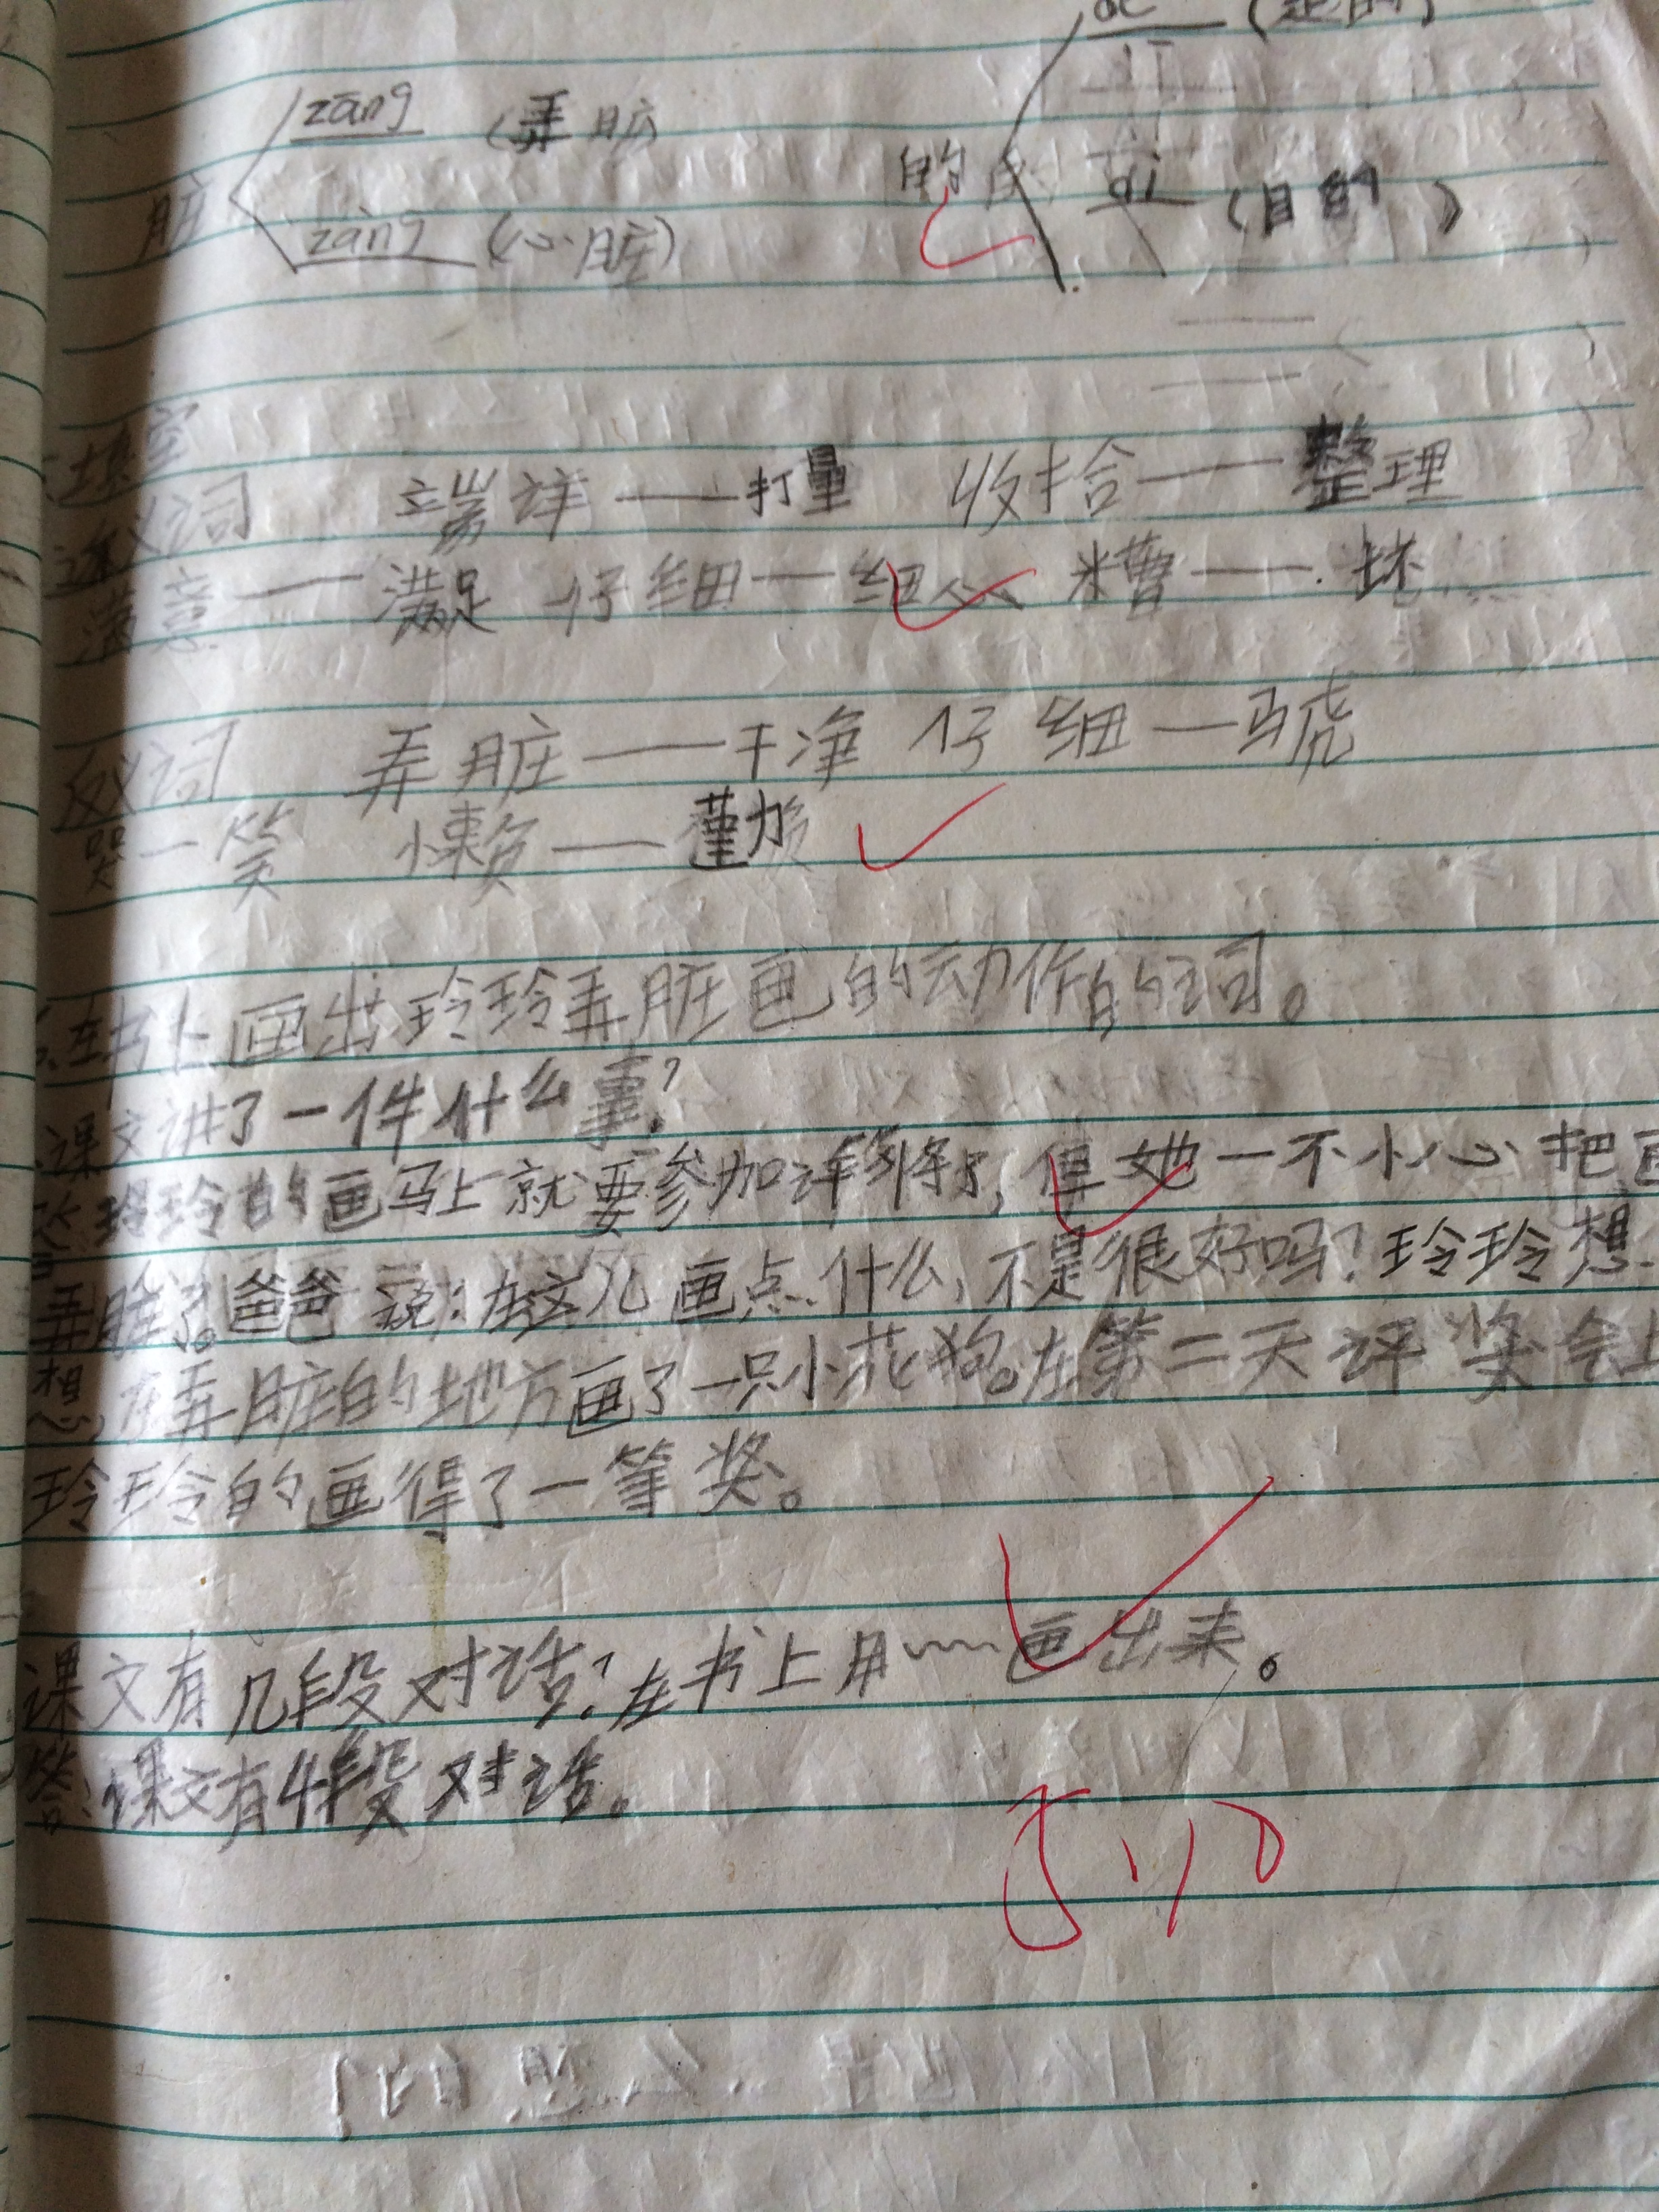 de (是的)
zāng (弄脏
脏
的
dì (目的)
zàng (心脏)
填空
近义词 端详——打量 收拾——整理
满意——满足 仔细——细心 糟——坏
反义词 弄脏——干净 仔细——马虎
哭—笑 懒——勤
在书上画出玲玲弄脏画的动作的词。
课文讲了一件什么事?
答 玲玲的画马上就要参加评奖了,但她一不小心把画
弄脏了。爸爸说:在这儿画点什么,不是很好吗?玲玲想
想 在弄脏的地方画了一只小花狗。在第二天评奖会上
玲玲的画得了一等奖。
课文有几段对话?在书上用﹏﹏画出来。
答:课文有4段对话。
5.10